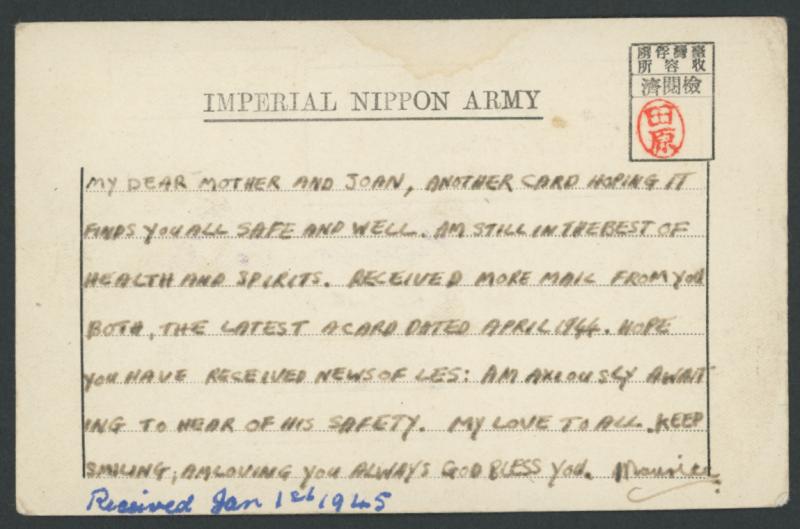 臺灣俘虜
收容所
檢閲濟
田原
IMPERIAL NIPPON ARMY
MY DEAR MOTHER AND JOAN, ANOTHER CARD HOPING IT
FINDS YOU ALL SAFE AND WELL. AM STILL IN THE BEST OF
HEALTH AND SPIRITS. RECEIVED MORE MAIL FROM YOU
BOTH, THE LATEST A CARD DATED APRIL 1944. HOPE
YOU HAVE RECEIVED NEWS OF LES: AM AXIOUSLY AWAIT
ING TO HEAR OF HIS SAFETY. MY LOVE TO ALL. KEEP
SMILING, AM LOVING YOU ALWAYS GOD BLESS YOU. Maurice
Received Jan 1st 1945